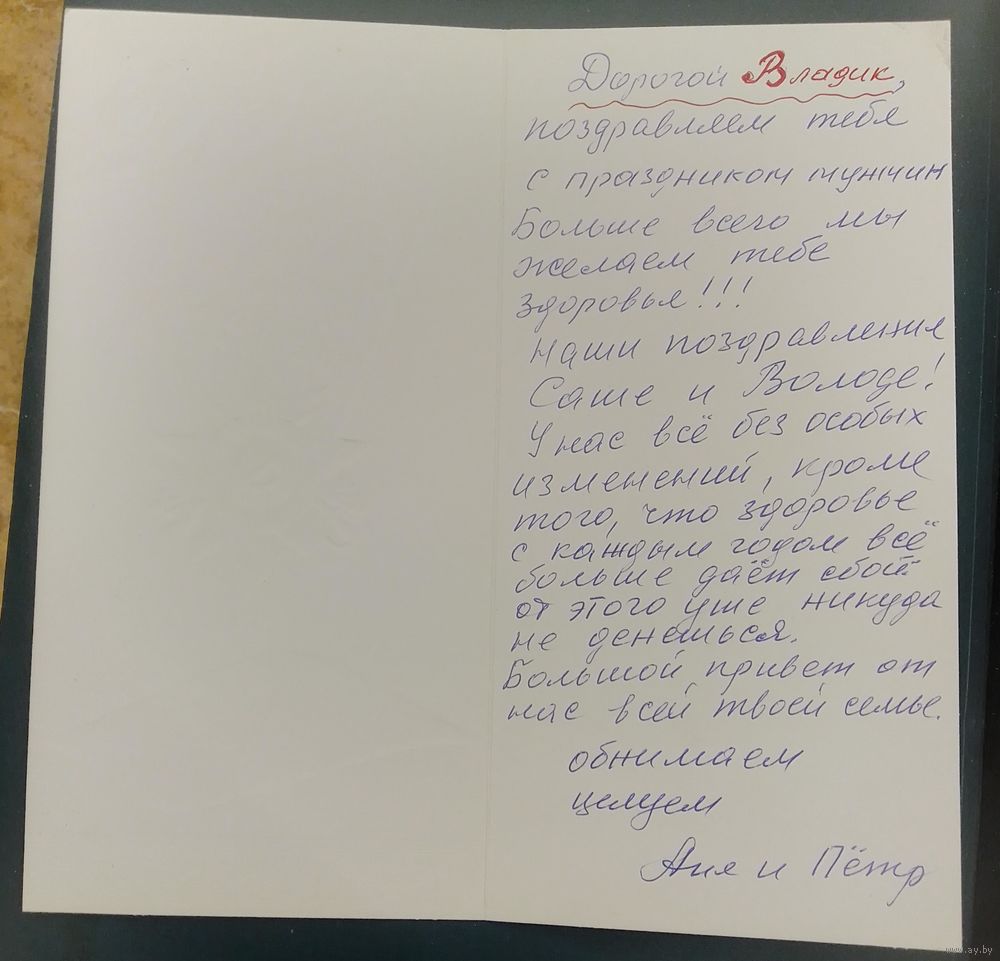 Дорогой Владик,
поздравляем тебя
с праздником мужчин
Больше всего мы
желаем тебе
здоровья!!!
Наши поздравления
Саше и Володе!
У нас всё без особых
изменений, кроме
того, что здоровье
с каждым годом всё
больше даёт сбой
от этого уше никуда
не денешься.
Большой привет от
нас всей твоей семье.
обнимаем
целуем
Аня и Пётр
www.ay.by